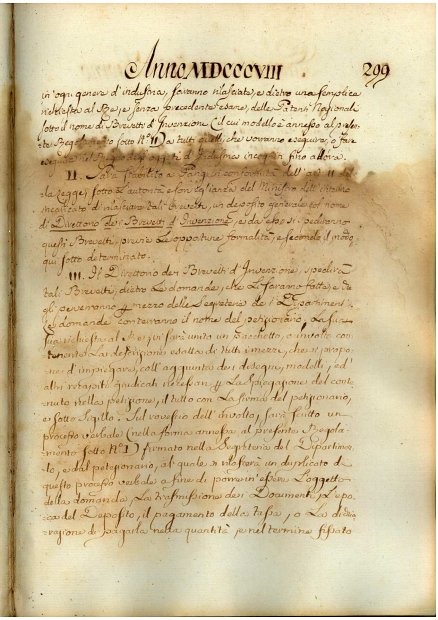 Anno MDCCCVIII 299
in ogni genere d'industria, saranno rilasciate, e dietro una semplice
richiesta al Re, e senza precedente esame, delle Patenti Nazionali
sotto il nome di Brevetti d'Invenzione (il cui modello è annesso al presen-
te Regolamento sotto N.° II) a tutti quelli che vorranno eseguire, o fare
eseguire nel Regno oggetti d'Industria incogniti fino allora.
II. Sarà stabilito a conformità dell'art. 11 del
la legge, sotto l'autorità e sorveglianza del Ministro dell'Interno
incaricato di rilasciare tali Brevetti, un deposito generale col nome
di Direttorio dei Brevetti d'Invenzione, e da esso si spediranno
questi Brevetti, previe le opportune formalità, e secondo il modo
qui sotto determinato.
III. Il Direttorio dei Brevetti d'Invenzione, spedirà
tali Brevetti, dietro le domande, che li saranno fatte, e che
gli perverranno per mezzo delle Segreterie dei Dipartimenti.
Le domande conterranno il nome del petizionario, la
sua richiesta al Re, vi sarà unito un pacchetto, o involto con-
tenente la descrizione esatta di tutti i mezzi, che si propo-
ne d'impiegare, coll'aggiunta dei disegni, modelli, ed
altri requisiti giudicati necessari per la spiegazione del conte-
nuto nella petizione, il tutto con la firma del petizionario,
e sotto sigillo. Sul rovescio dell'involto, sarà steso un
processo verbale (nella forma annessa al presente Regola-
mento sotto N.° I) firmato nella Segreteria del Dipartimen-
to, e dal petizionario, al quale si rilascerà un duplicato di
questo processo verbale a fine di porre in essere l'oggetto
della domanda, la trasmissione dei Documenti, l'epo-
ca del Deposito, il pagamento della tassa, o la dichia-
razione di pagarla nella quantità, e nel termine fissato